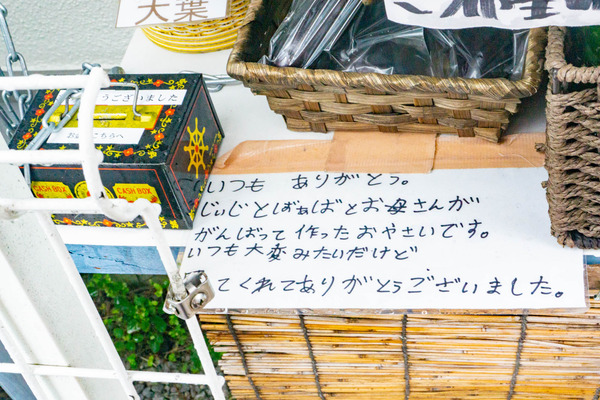 大葉
うございました
こちらへ
CASH BOX
CASH BOX
いつも ありがとう。
じぃじとばぁばとお母さんが
がんばって作ったおやさいです。
いつも大変みたいだけど
てくれてありがとうございました。